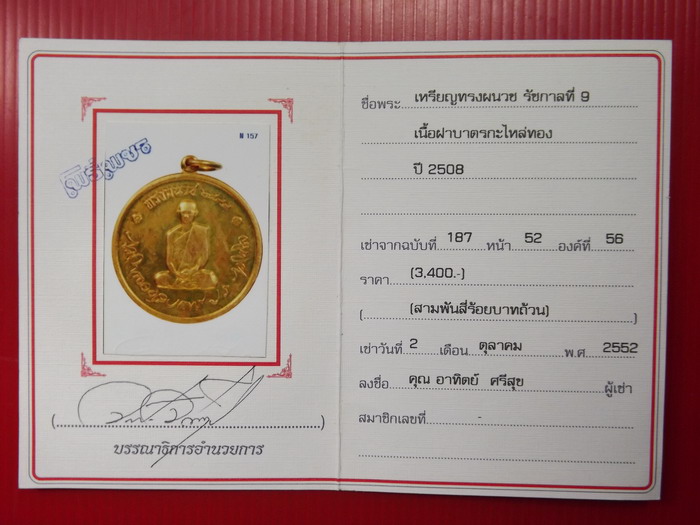 ๒ 157
ทรงผนวช ๒๔๙๙
บรรณาธิการอำนวยการ
ชื่อพระ เหรียญทรงผนวช รัชกาลที่ 9
เนื้อฝาบาตรกะไหล่ทอง
ปี 2508
เช่าจากฉบับที่ 187 หน้า 52 องค์ที่ 56
ราคา (3,400.-)
( (สามพันสี่ร้อยบาทถ้วน) )
เช่าวันที่ 2 เดือน ตุลาคม พ.ศ. 2552
ลงชื่อ คุณ อาทิตย์ ศรีสุข ผู้เช่า
สมาชิกเลขที่ -